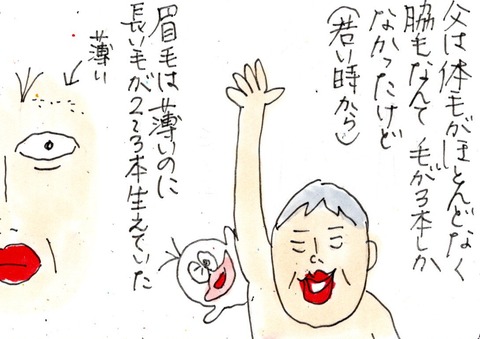 父は体毛がほとんどなく
脇もなんて 毛が3本しか
なかったけど
(若い時から)
眉毛は薄いのに
長い毛が2〜3本生えていた
薄い